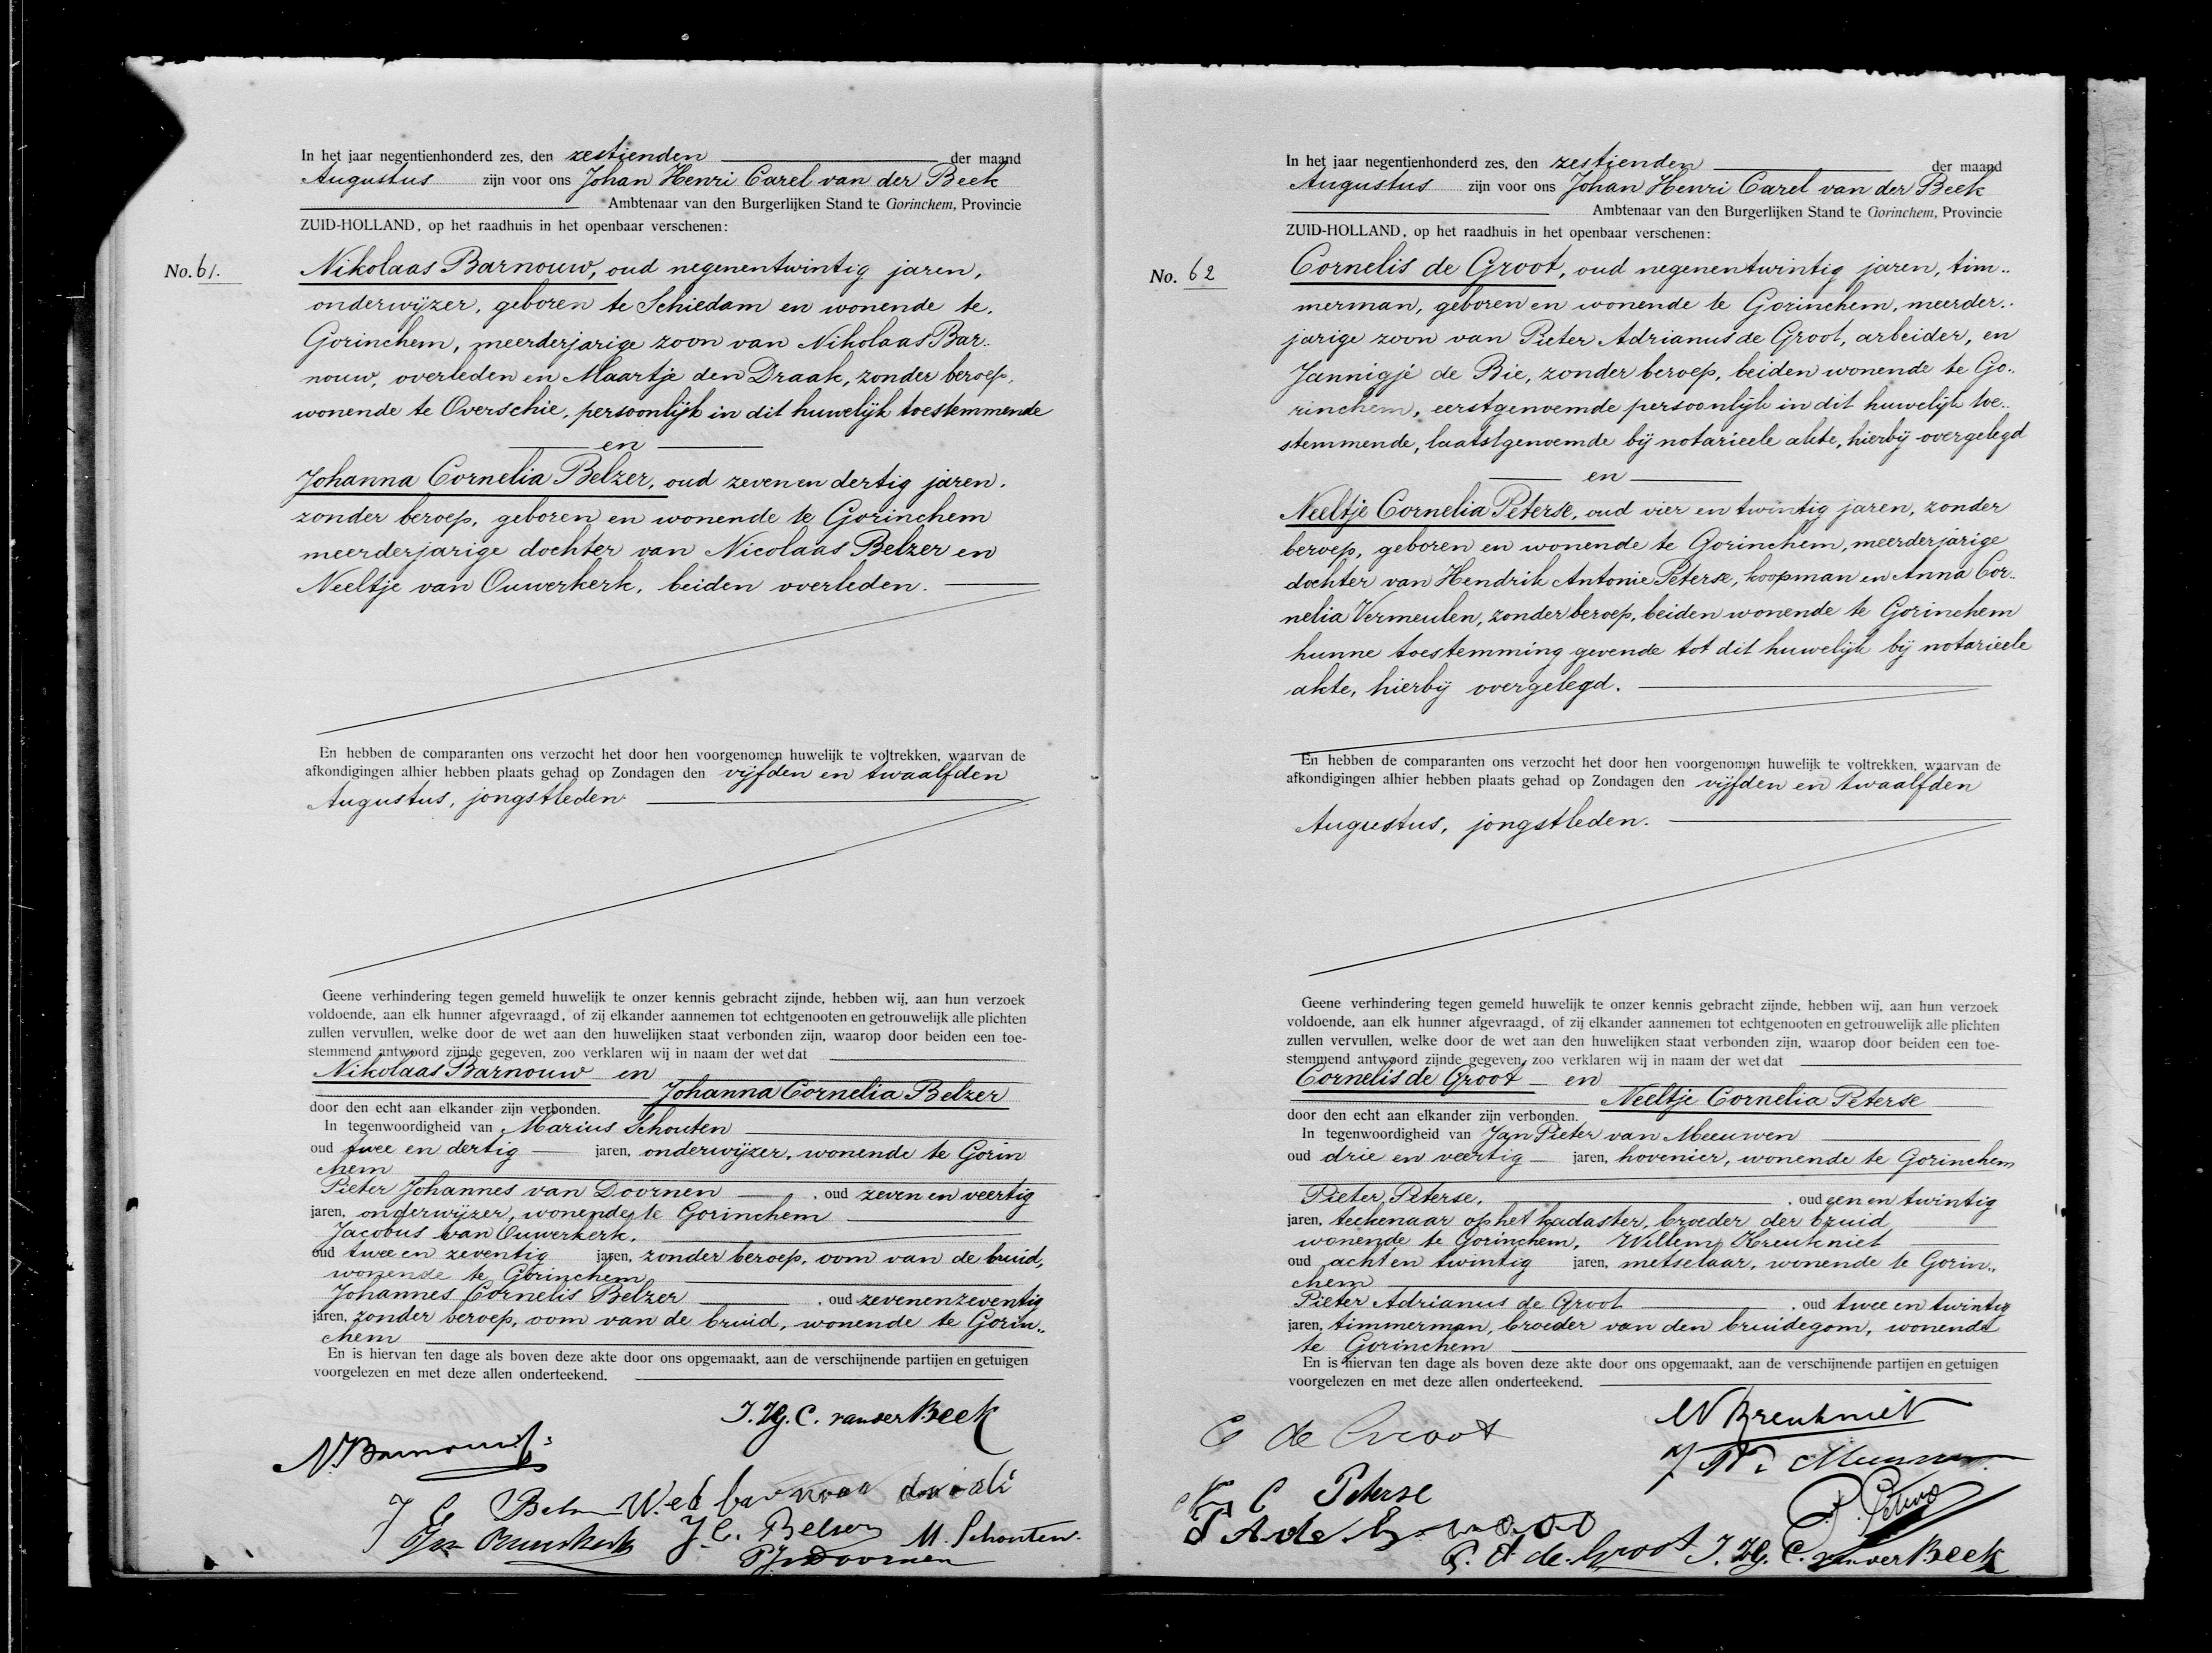 In het jaar negentienhonderd zes, den zestienden der maand
Augustus zijn voor ons Johan Henri Carel van der Beek
Ambtenaar van den Burgerlijken Stand te Gorinchem, Provincie
ZUID-HOLLAND, op het raadhuis in het openbaar verschenen:
No. 61.
Nikolaas Barnouw, oud negenentwintig jaren,
onderwijzer, geboren te Schiedam en wonende te
Gorinchem, meerderjarige zoon van Nikolaas Bar„
nouw, overleden en Maartje den Draak, zonder beroep,
wonende te Overschie, persoonlijk in dit huwelijk toestemmende
en
Johanna Cornelia Belzer, oud zeven en dertig jaren,
zonder beroep, geboren en wonende te Gorinchem
meerderjarige dochter van Nicolaas Belzer en
Neeltje van Ouwerkerk, beiden overleden.
En hebben de comparanten ons verzocht het door hen voorgenomen huwelijk te voltrekken, waarvan de
afkondigingen alhier hebben plaats gehad op Zondagen den vijfden en twaalfden
Augustus, jongstleden
Geene verhindering tegen gemeld huwelijk te onzer kennis gebracht zijnde, hebben wij, aan hun verzoek
voldoende, aan elk hunner afgevraagd, of zij elkander aannemen tot echtgenooten en getrouwelijk alle plichten
zullen vervullen, welke door de wet aan den huwelijken staat verbonden zijn, waarop door beiden een toe-
stemmend antwoord zijnde gegeven, zoo verklaren wij in naam der wet dat
Nikolaas Barnouw en
Johanna Cornelia Belzer
door den echt aan elkander zijn verbonden.
In tegenwoordigheid van Marius Schouten
oud twee en dertig jaren, onderwijzer, wonende te Gorin
chem
Pieter Johannes van Doornen , oud zeven en veertig
jaren, onderwijzer, wonende te Gorinchem
Jacobus van Ouwerkerk,
oud twee en zeventig jaren, zonder beroep, oom van de bruid,
wonende te Gorinchem
Johannes Cornelis Belzer , oud zevenenzeventig
jaren, zonder beroep, oom van de bruid, wonende te Gorin„
chem
En is hiervan ten dage als boven deze akte door ons opgemaakt, aan de verschijnende partijen en getuigen
voorgelezen en met deze allen onderteekend.
J. H. C. van der Beek
N. Barnouw
J C
J. C. Belzer
M. Schouten.
PJvDoornen
In het jaar negentienhonderd zes, den zestienden der maand
Augustus zijn voor ons Johan Henri Carel van der Beek
Ambtenaar van den Burgerlijken Stand te Gorinchem, Provincie
ZUID-HOLLAND, op het raadhuis in het openbaar verschenen:
No. 62
Cornelis de Groot, oud negenentwintig jaren, tim„
merman, geboren en wonende te Gorinchem, meerder„
jarige zoon van Pieter Adrianus de Groot, arbeider, en
Jannigje de Bie, zonder beroep, beiden wonende te Go„
rinchem, eerstgenoemde persoonlijk in dit huwelijk toe„
stemmende, laatstgenoemde bij notarieele akte, hierbij overgelegd
en
Neeltje Cornelia Peterse, oud vier en twintig jaren, zonder
beroep, geboren en wonende te Gorinchem, meerderjarige
dochter van Hendrik Antonie Peterse, koopman en Anna Cor„
nelia Vermeulen, zonder beroep, beiden wonende te Gorinchem
hunne toestemming gevende tot dit huwelijk bij notarieele
akte, hierbij overgelegd.
En hebben de comparanten ons verzocht het door hen voorgenomen huwelijk te voltrekken, waarvan de
afkondigingen alhier hebben plaats gehad op Zondagen den vijfden en twaalfden
Augustus, jongstleden.
Geene verhindering tegen gemeld huwelijk te onzer kennis gebracht zijnde, hebben wij, aan hun verzoek
voldoende, aan elk hunner afgevraagd, of zij elkander aannemen tot echtgenooten en getrouwelijk alle plichten
zullen vervullen, welke door de wet aan den huwelijken staat verbonden zijn, waarop door beiden een toe-
stemmend antwoord zijnde gegeven, zoo verklaren wij in naam der wet dat
Cornelis de Groot en
Neeltje Cornelia Peterse
door den echt aan elkander zijn verbonden.
In tegenwoordigheid van Jan Pieter van Meeuwen
oud drie en veertig jaren, hovenier, wonende te Gorinchem
Pieter Peterse, , oud een en twintig
jaren, teekenaar op het kadaster, broeder der bruid
wonende te Gorinchem, Willem Kreukniet
oud acht en twintig jaren, metselaar, wonende te Gorin„
chem
Pieter Adrianus de Groot , oud twee en twintig
jaren, timmerman, broeder van den bruidegom, wonende
te Gorinchem
En is hiervan ten dage als boven deze akte door ons opgemaakt, aan de verschijnende partijen en getuigen
voorgelezen en met deze allen onderteekend.
C de Groot
W Kreukniet
N C Peterse
P. Peterse
P A de Groot
P. A. de Groot
J. H. C. van der Beek